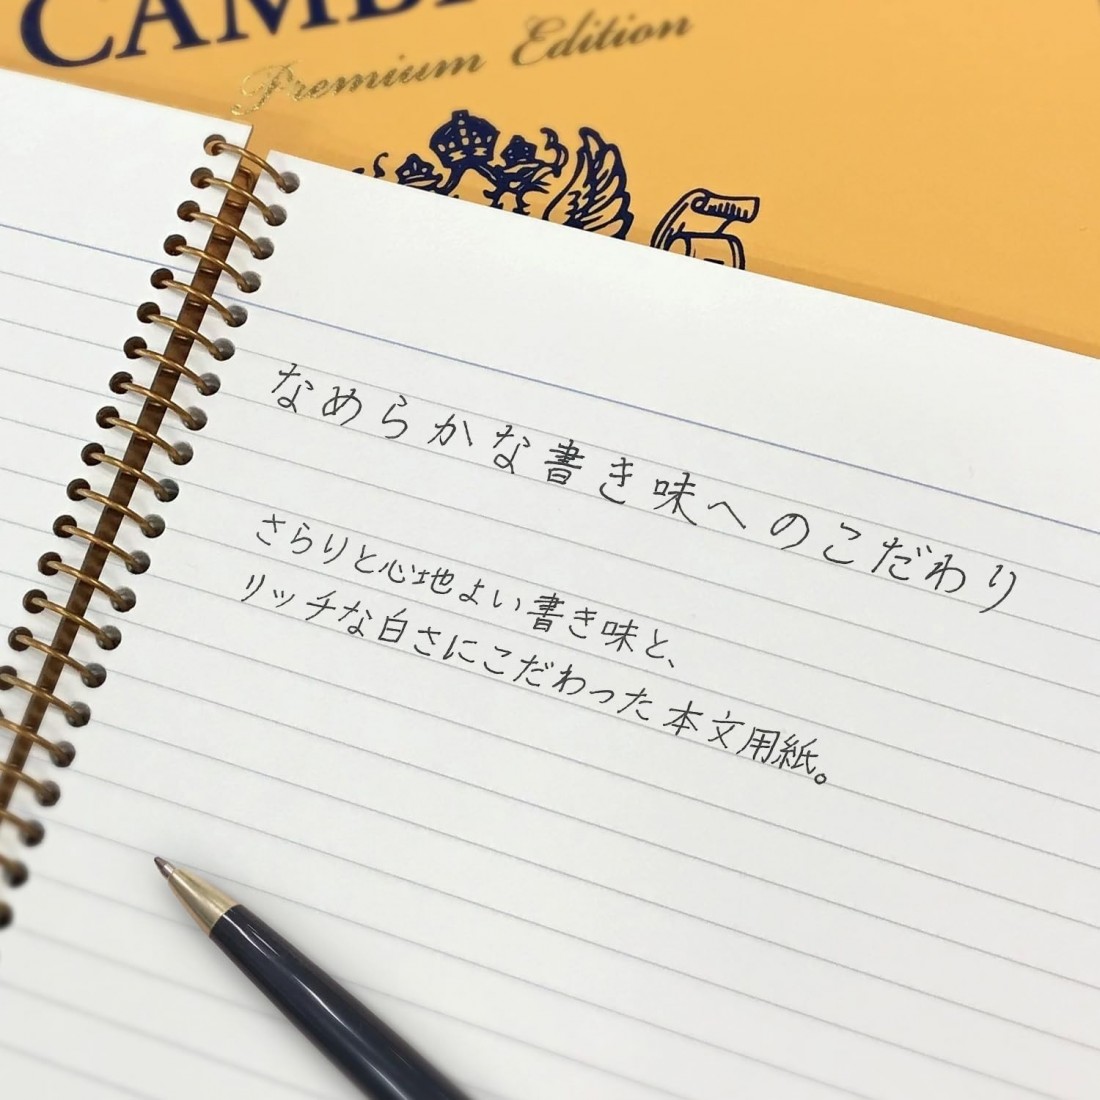 Premium Edition
なめらかな書き味へのこだわり
さらりと心地よい書き味と、
リッチな白さにこだわった本文用紙。